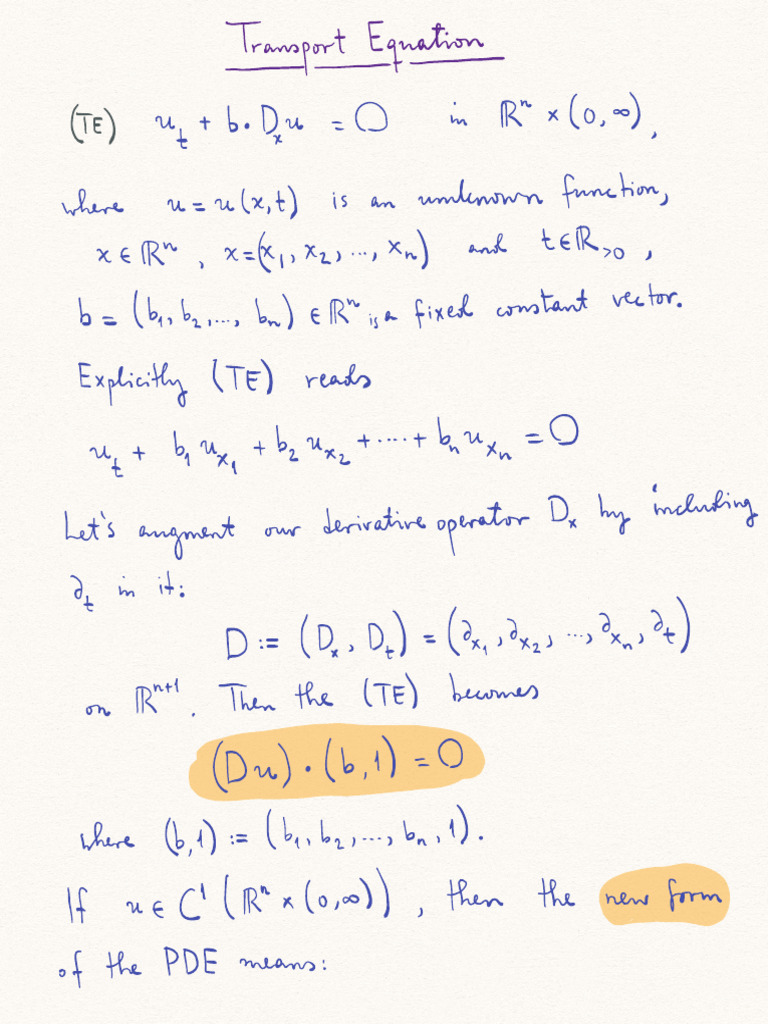 Transport Equation
(TE) u_t + b · D_x u = 0 in ℝⁿ × (0, ∞),
where u = u(x,t) is an unknown function,
x ∈ ℝⁿ, x = (x₁, x₂, ..., xₙ) and t ∈ ℝ_{>0},
b = (b₁, b₂, ..., bₙ) ∈ ℝⁿ is a fixed constant vector.
Explicitly (TE) reads
u_t + b₁ u_{x₁} + b₂ u_{x₂} + ···· + bₙ u_{xₙ} = 0
Let's augment our derivative operator D_x by including
∂_t in it:
D := (D_x, D_t) = (∂_{x₁}, ∂_{x₂}, ..., ∂_{xₙ}, ∂_t)
on ℝⁿ⁺¹. Then the (TE) becomes
(Du) · (b, 1) = 0
where (b,1) := (b₁, b₂, ..., bₙ, 1).
If u ∈ C¹(ℝⁿ × (0,∞)), then the new form
of the PDE means: